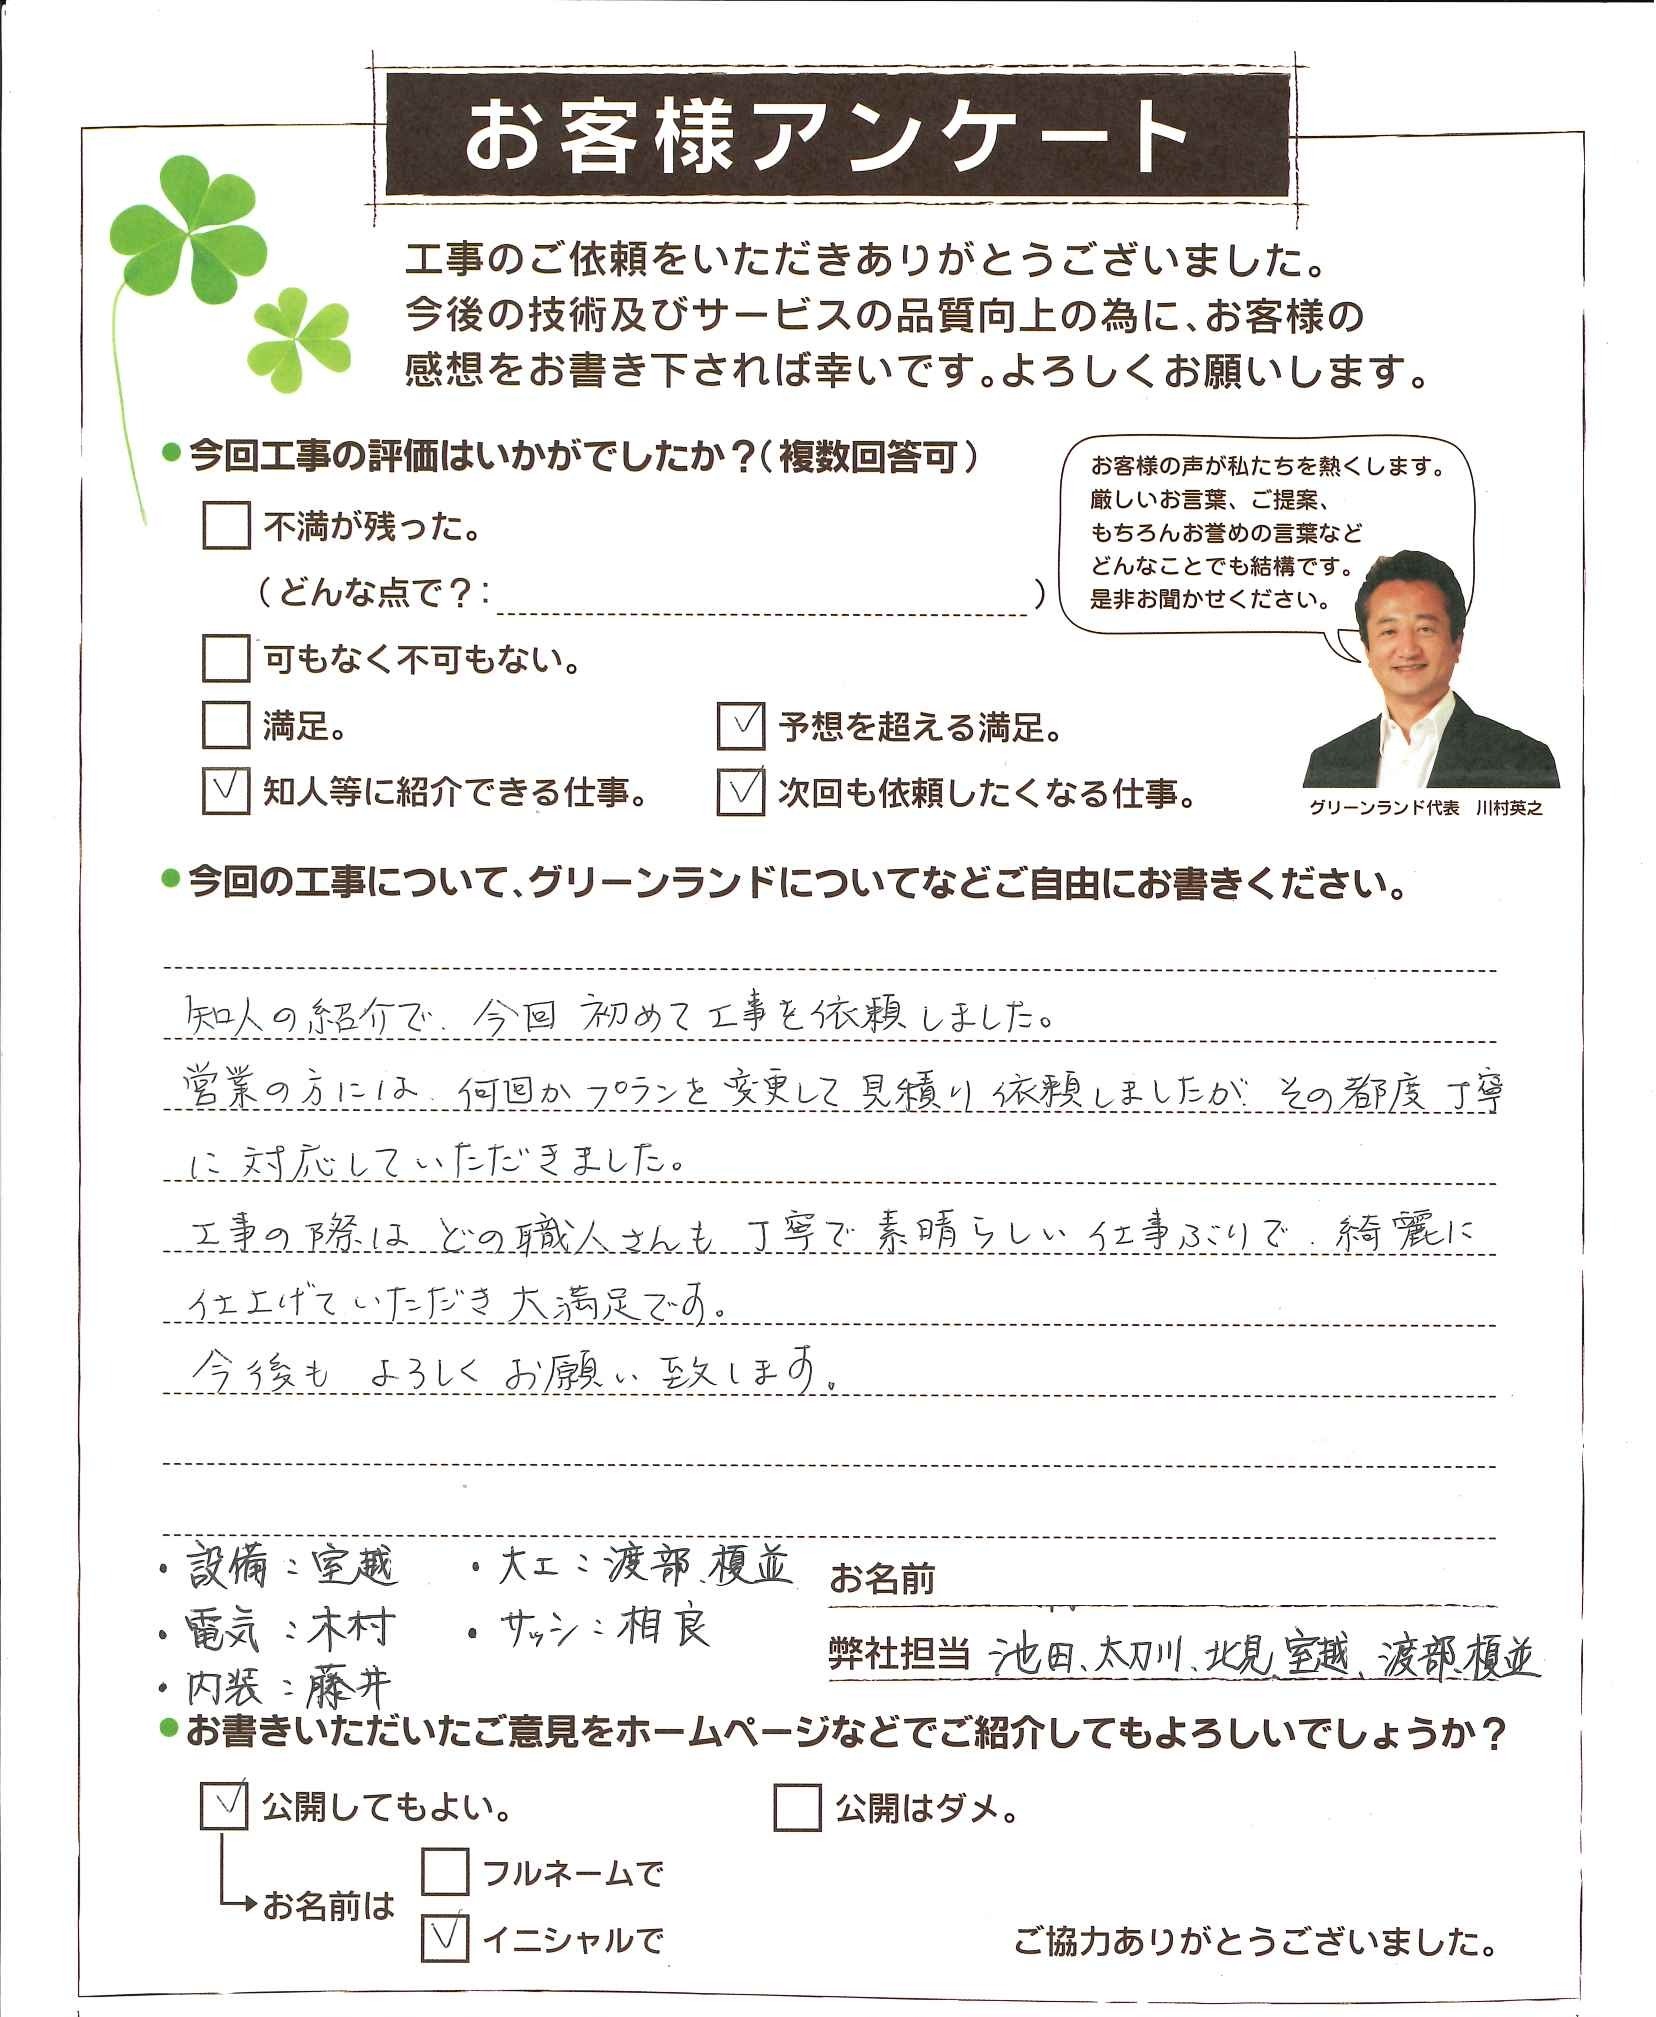 お客様アンケート
工事のご依頼をいただきありがとうございました。
今後の技術及びサービスの品質向上の為に、お客様の
感想をお書き下されば幸いです。よろしくお願いします。
●今回工事の評価はいかがでしたか？（複数回答可）
お客様の声が私たちを熱くします。
厳しいお言葉、ご提案、
もちろんお誉めの言葉など
どんなことでも結構です。
是非お聞かせください。
不満が残った。
（どんな点で？：　）
可もなく不可もない。
満足。
✓ 予想を超える満足。
✓ 知人等に紹介できる仕事。
✓ 次回も依頼したくなる仕事。
グリーンランド代表　川村英之
●今回の工事について、グリーンランドについてなどご自由にお書きください。
知人の紹介で、今回 初めて工事を依頼しました。
営業の方には、何回かプランを変更して見積り依頼しましたが、その都度 丁寧
に対応していただきました。
工事の際は どの職人さんも 丁寧で素晴らしい仕事ぶりで、綺麗に
仕上げていただき大満足です。
今後も よろしく お願い致します。
・設備：室越　・大工：渡部、榎並
・電気：木村　・サッシ：相良
・内装：藤井
お名前
弊社担当 池田、太刀川、北見、室越、渡部、榎並
●お書きいただいたご意見をホームページなどでご紹介してもよろしいでしょうか？
✓ 公開してもよい。
公開はダメ。
お名前は
フルネームで
✓ イニシャルで
ご協力ありがとうございました。